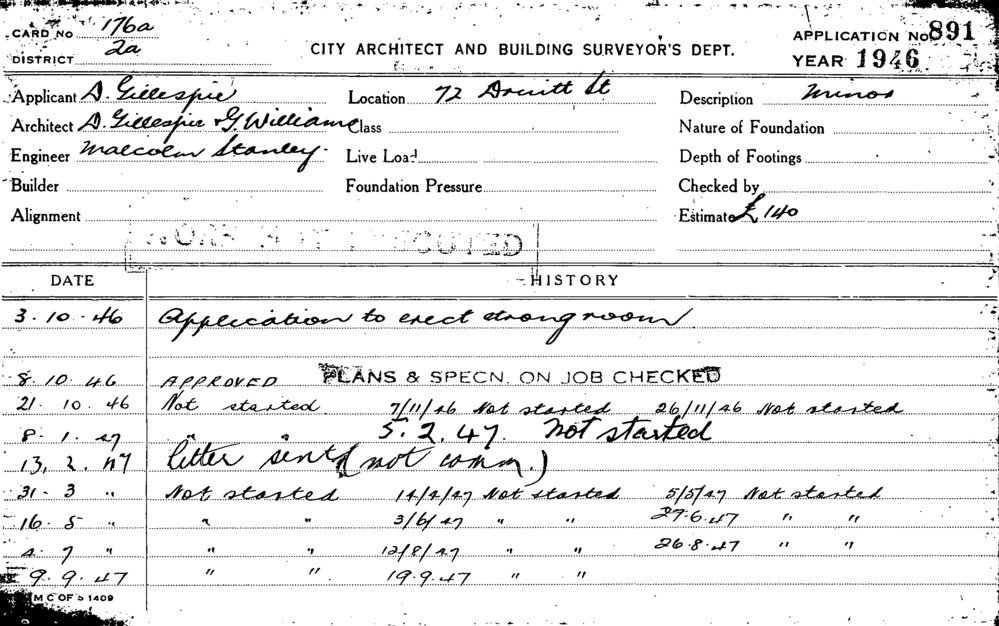 CARD No 176a
DISTRICT 2a
CITY ARCHITECT AND BUILDING SURVEYOR'S DEPT.
APPLICATION No 891
YEAR 1946
Applicant D. Gillespie Location 72 Druitt St Description Minor
Architect D. Gillespie & G. Williams Class Nature of Foundation
Engineer Malcolm Stanley. Live Load Depth of Footings
Builder Foundation Pressure Checked by
Alignment Estimate £140
WORK NOT EXECUTED
DATE HISTORY
3.10.46 Application to erect strong room
8.10.46 APPROVED PLANS & SPECN. ON JOB CHECKED
21.10.46 Not started. 7/11/46 Not started 26/11/46 Not started
8.1.47 " " 5.2.47. Not started
13.2.47 letter sent (not comm.)
31.3 " Not started 14/4/47 Not started 5/5/47 Not started
16.5 " " " 3/6/47 " " 27.6.47 " "
4.7 " " " 12/8/47 " " 26.8.47 " "
9.9.47 " " 19.9.47 " "
M C OF S 1409